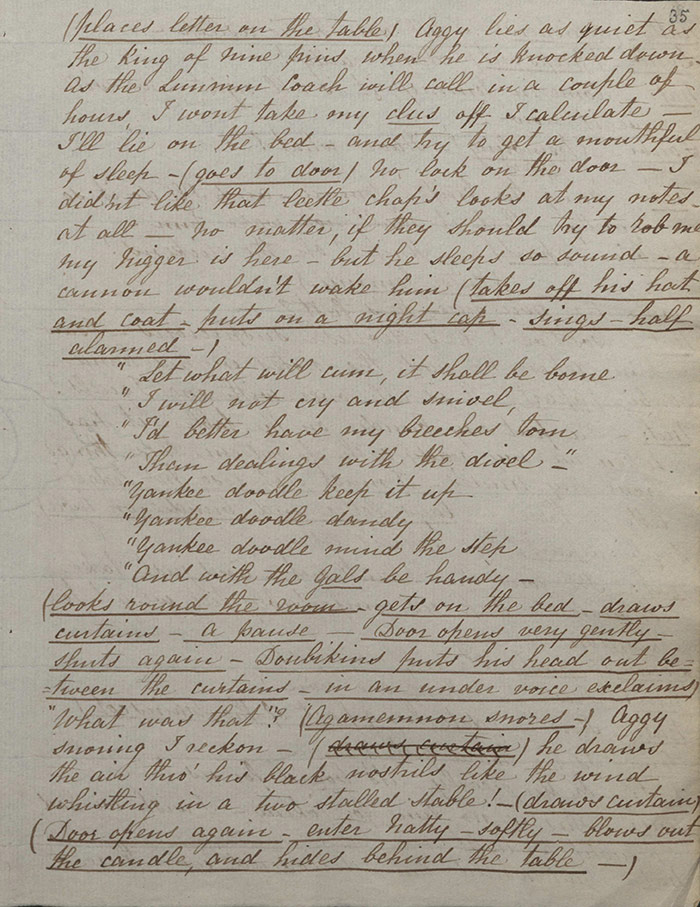 35
(places letter on the table) Aggy lies as quiet as
the king of nine pins when he is knocked down
As the Lunnun Coach will call in a couple of
hours, I wont take my clus off I calculate —
I'll lie on the bed – and try to get a mouthful
of sleep – (goes to door) No lock on the door — I
did'nt like that leetle chap's looks at my notes
at all — no matter, if they should try to rob me
my Nigger is here – but he sleeps so sound – a
cannon wouldn't wake him (takes off his hat
and coat – puts on a night cap – sings – half
alarmed –)
"Let what will cum, it shall be borne
"I will not cry and snivel,
"I'd better have my breeches torn
"Than dealings with the divel –"
"Yankee doodle keep it up
"Yankee doodle dandy
"Yankee doodle mind the step
"And with the gals be handy –
(looks round the room – gets on the bed – draws
curtains – a pause — Door opens very gently –
shuts again – Doubikins puts his head out be=
=tween the curtains – in an under voice exclaims)
"What was that"? (Agamemnon snores –) Aggy
snoring I reckon – (draws curtain) he draws
the air thro' his black nostrils like the wind
whistling in a two stalled stable! – (draws curtain)
(Door opens again – enter Natty – softly – blows out
the candle, and hides behind the table —)